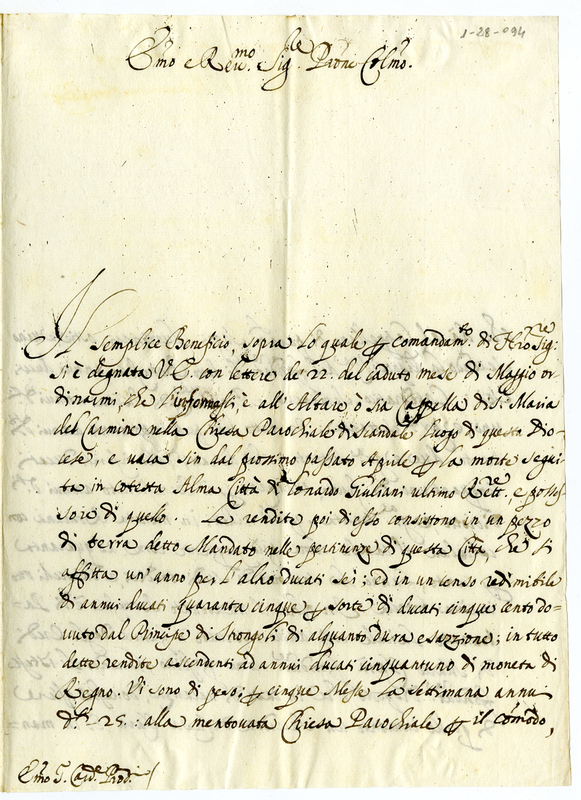 1-28-094
Emo e Reumo. Sigle Prōne Colmo.
Il semplice Beneficio, sopra lo quale p comandamto. di Nro Sigre:
si è degnata V.E. con lettere de' 22. del caduto mese di Maggio or
dinarmi, che l'informassi, è all'Altare ò sia Cappella di S. Maria
del Carmine nella Chiesa Parochiale di Scandale luogo di questa Dio=
cese, e vaca sin dal prossimo passato Aprile p la morte segui=
ta in cotesta Alma Città di Lonardo Giuliani ultimo Rettre, e posses=
sore di quello. Le rendite poi di esso consistono in un pezzo
di terra detto Mandato nelle pertinenze di questa Città, che si
affitta un' anno per l'altro ducati sei; ed in un censo redimibile
di annui ducati quaranta cinque p sorte di ducati cinque cento do=
vuto dal Principe di Strongoli di alquanto dura esazzione; in tutto
dette rendite ascendenti ad annui ducati cinquantuno di moneta di
Regno. Vi sono di peso; p cinque Messe la settimana annui
dti. 25: alla mentovata Chiesa Parochiale p il comodo,
Emo S. Carde Prod.